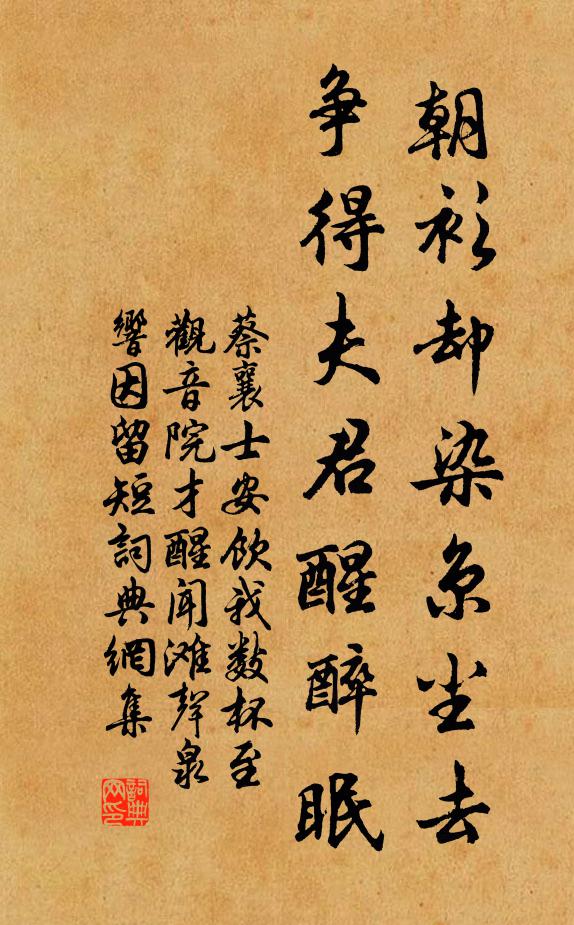 朝衫却染京尘去
争得夫君醒醉眠
蔡襄士安饮我数杯至
觀音院才醒闻滩聲泉
響因留短詞典網集
詞典
网印